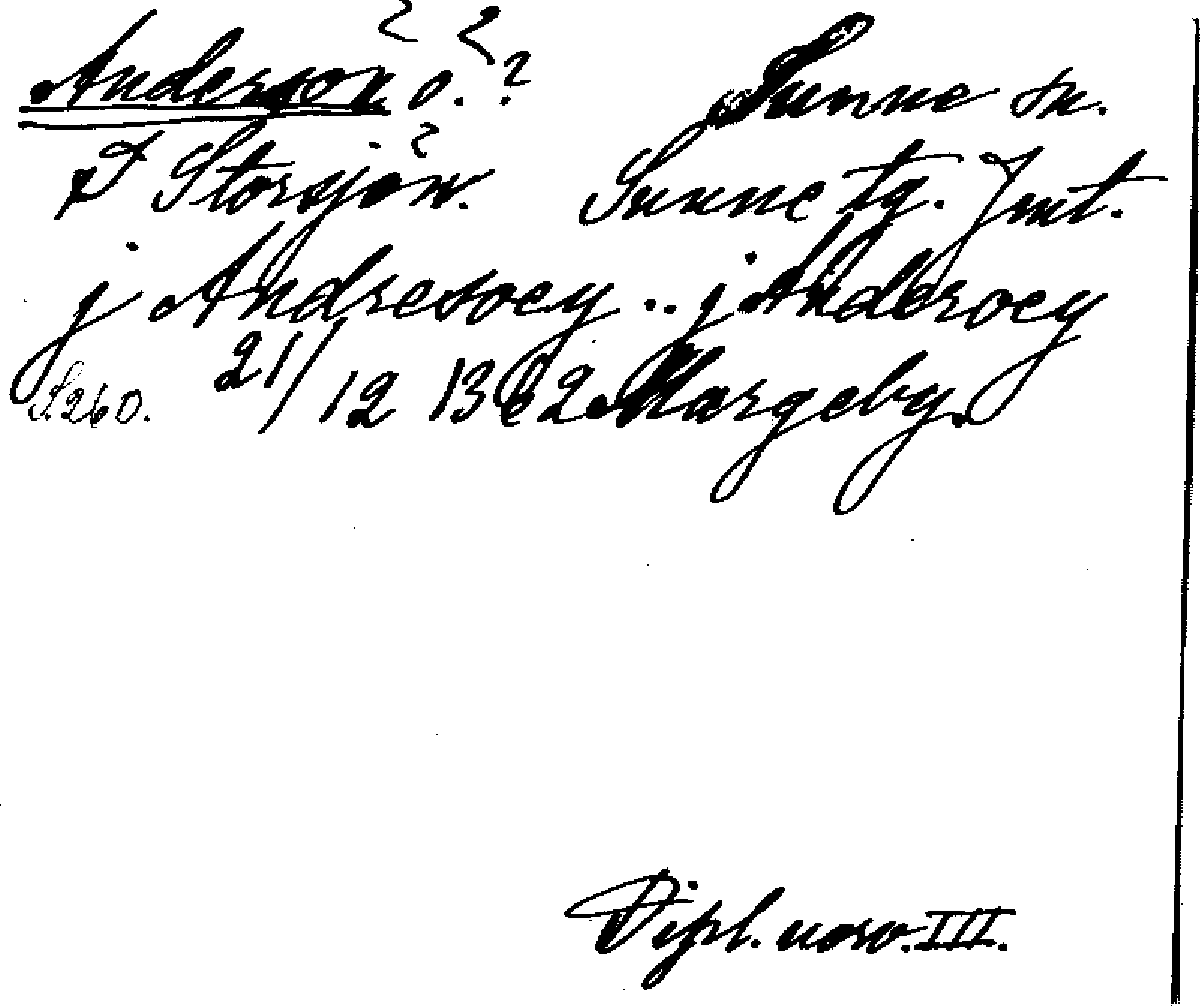 Andersön ö. ? Sunne sn.
I Storsjön. Sunne tg. Jmt.
j Andresoey .. j Anderoey
S260. 21/12 1382 Margeby.
Dipl. norv. III.